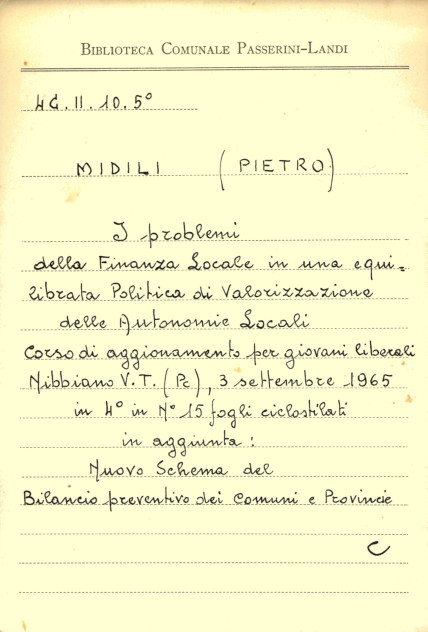 BIBLIOTECA COMUNALE PASSERINI-LANDI
4C. II. 10. 5°
MIDILI (PIETRO)
I problemi
della Finanza Locale in una equi=
librata Politica di Valorizzazione
delle Autonomie Locali
Corso di aggionamento per giovani liberali
Nibbiano V.T. (Pc), 3 settembre 1965
in 4° in N° 15 fogli ciclostilati
in aggiunta:
Nuovo Schema del
Bilancio preventivo dei Comuni e Provincie
C